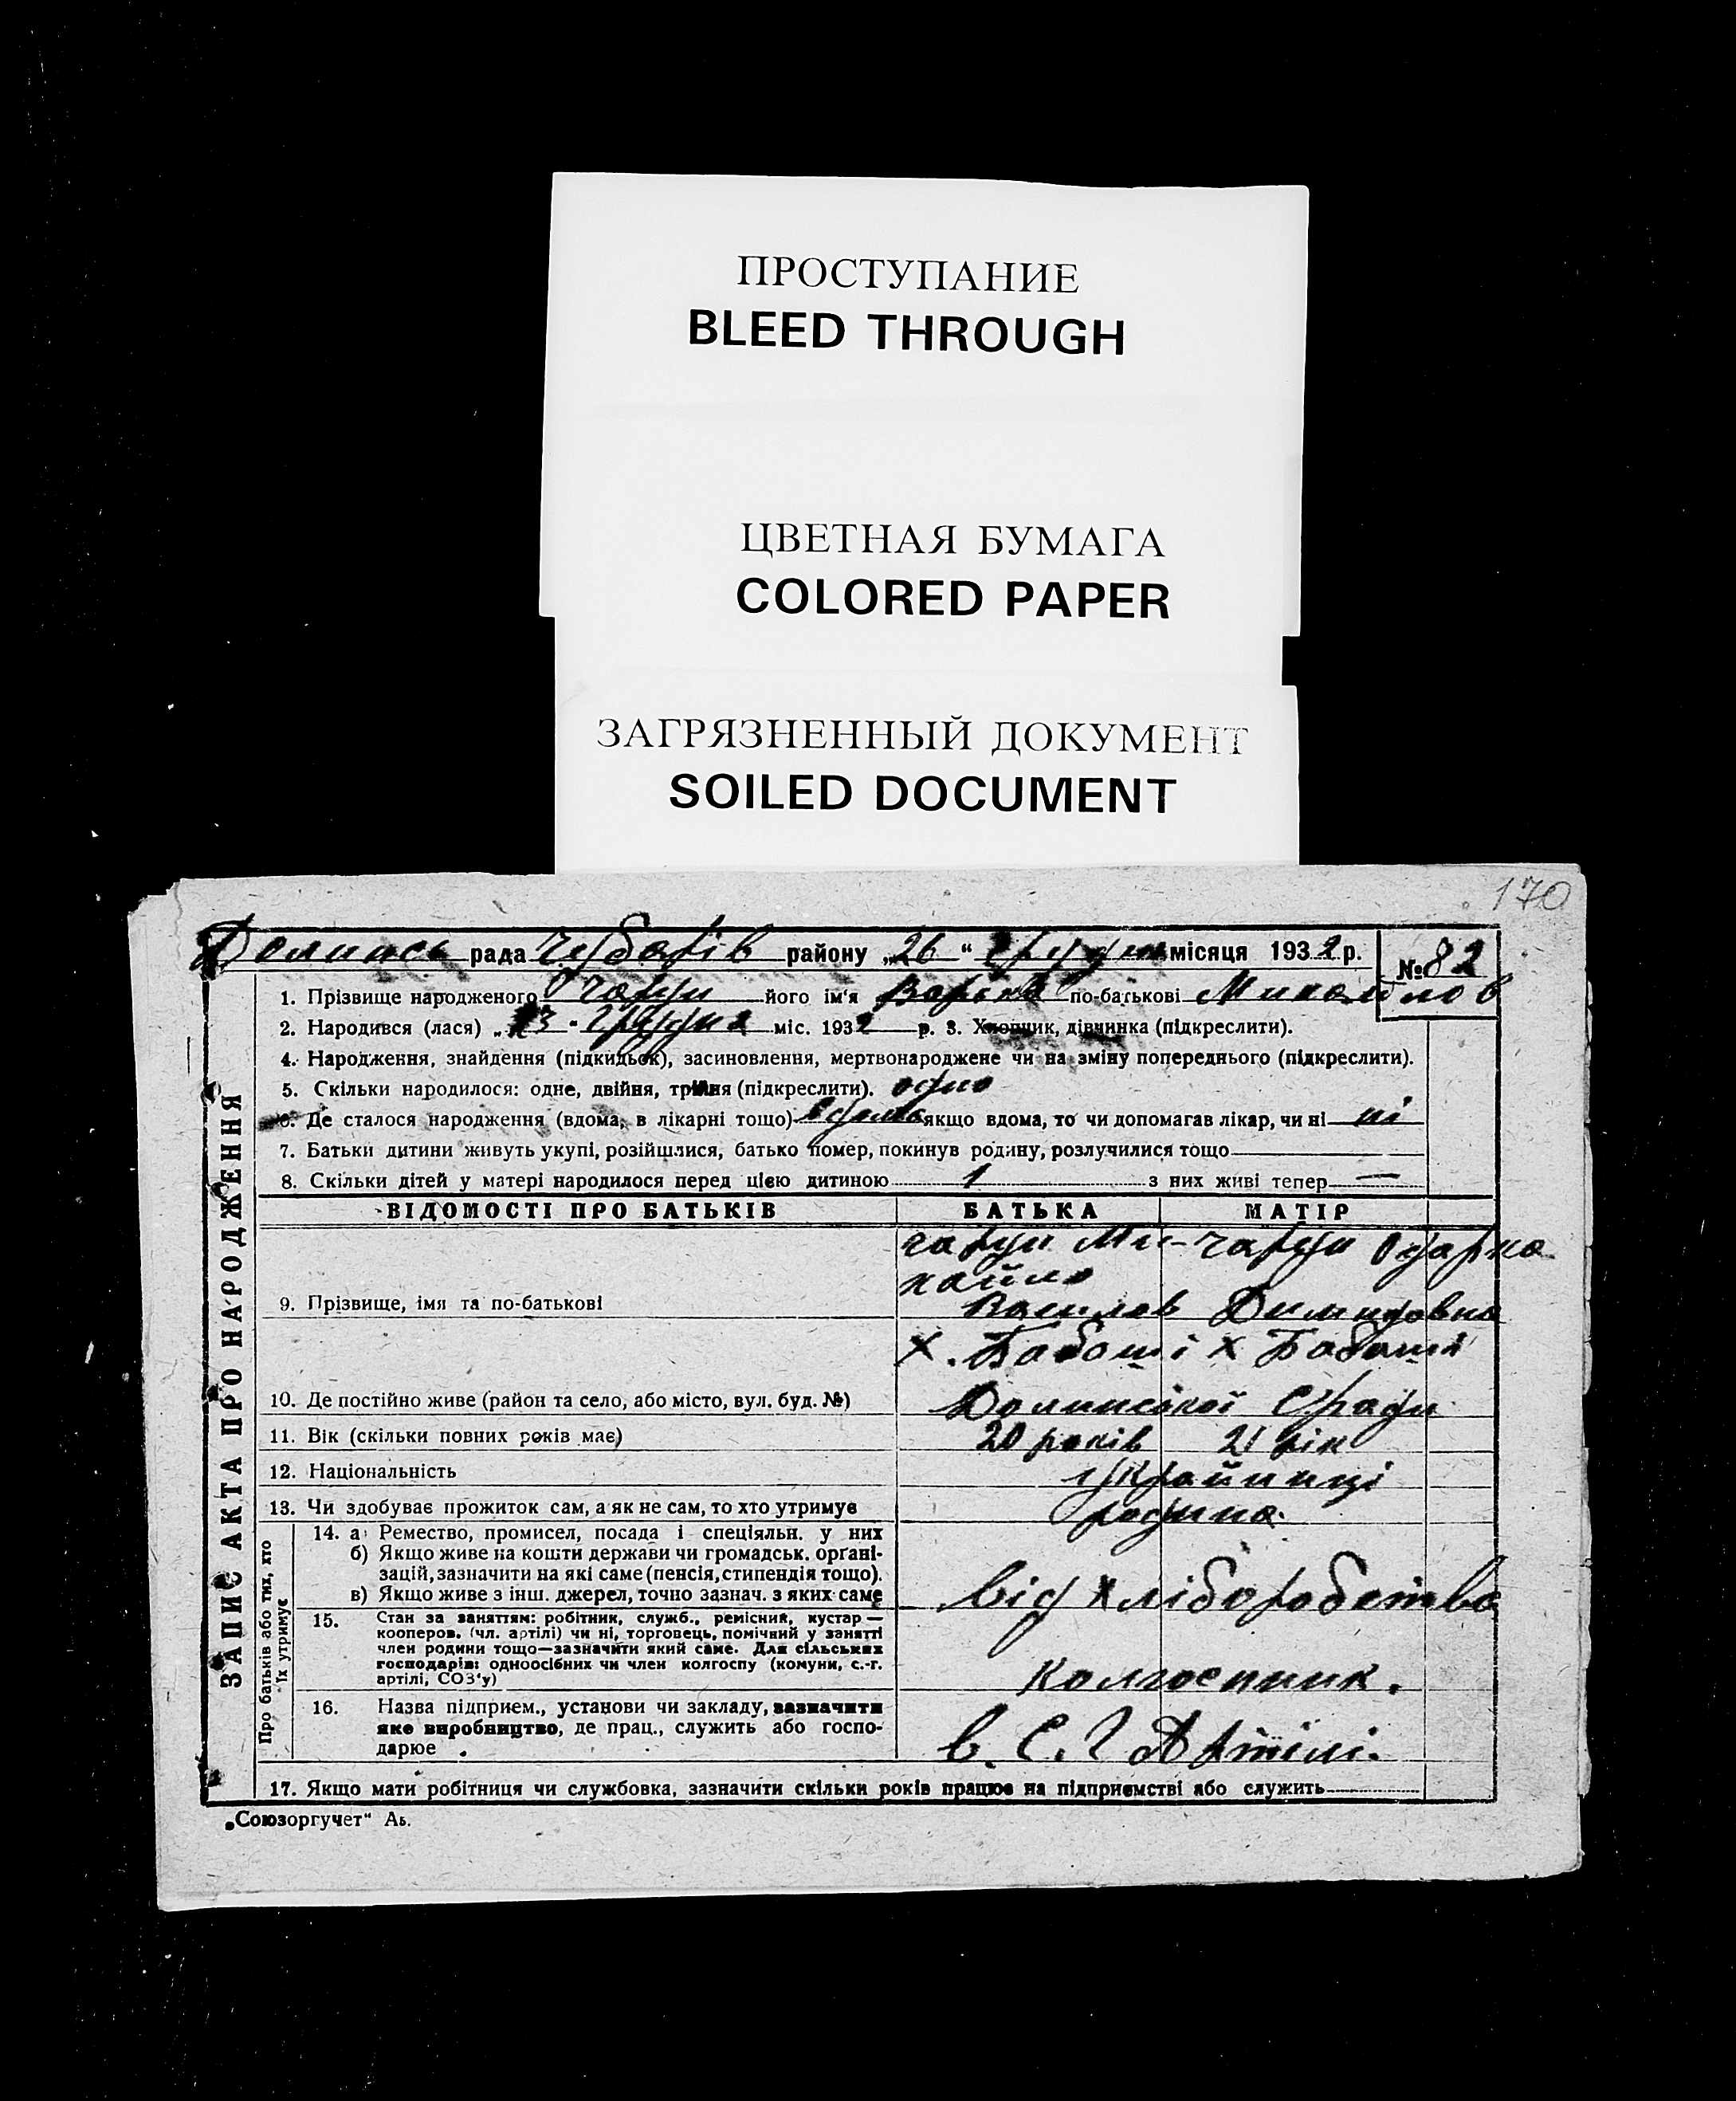 ПРОСТУПАНИЕ
BLEED THROUGH
ЦВЕТНАЯ БУМАГА
COLORED PAPER
ЗАГРЯЗНЕННЫЙ ДОКУМЕНТ
SOILED DOCUMENT
170
рада району „26 " місяця 1932 р. № 82
1. Прізвище народженого його ім'я по-батькові
2. Народився (лася) „ " міс. 1932 р. 3. Хлопчик, дівчинка (підкреслити).
4. Народження, знайдення (підкидьок), засиновлення, мертвонароджене чи на зміну попереднього (підкреслити).
5. Скільки народилося: одне, двійня, трійня (підкреслити). одно
6. Де сталося народження (вдома, в лікарні тощо) вдома якщо вдома, то чи допомагав лікар, чи ні ні
7. Батьки дитини живуть укупі, розійшлися, батько помер, покинув родину, розлучилися тощо
8. Скільки дітей у матері народилося перед цією дитиною 1 з них живі тепер —
ЗАПИС АКТА ПРО НАРОДЖЕННЯ
ВІДОМОСТІ ПРО БАТЬКІВ БАТЬКА МАТІР
Ми- Одарка
хайло
9. Прізвище, імя та по-батькові Василов Демидовна
х. Бабаші х Бабаші
10. Де постійно живе (район та село, або місто, вул. буд. №) Долинської С/ради
11. Вік (скільки повних років має) 20 років 21 рік
12. Національність Українці
13. Чи здобуває прожиток сам, а як не сам, то хто утримує родина.
Про батьків або тих, хто їх утримує
14. а) Ремество, промисел, посада і спеціяльн. у них
б) Якщо живе на кошти держави чи громадськ. органі-
зацій, зазначити на які саме (пенсія, стипендія тощо).
в) Якщо живе з інш. джерел, точно зазнач. з яких саме від хліборобства
15. Стан за заняттям: робітник, служб., ремісник, кустар —
кооперов. (чл. артілі) чи ні, торговець, помічний у занятті
член родини тощо—зазначити який саме. Для сільських
господарів: одноосібних чи член колгоспу (комуни, с.-г.
артілі, СОЗ'у) колгоспник.
16. Назва підприєм., установи чи закладу, зазначити
яке виробництво, де прац., служить або госпо-
дарює в С.Г Артілі.
17. Якщо мати робітниця чи службовка, зазначити скільки років працює на підприємстві або служить
„Союзоргучет" Аь.